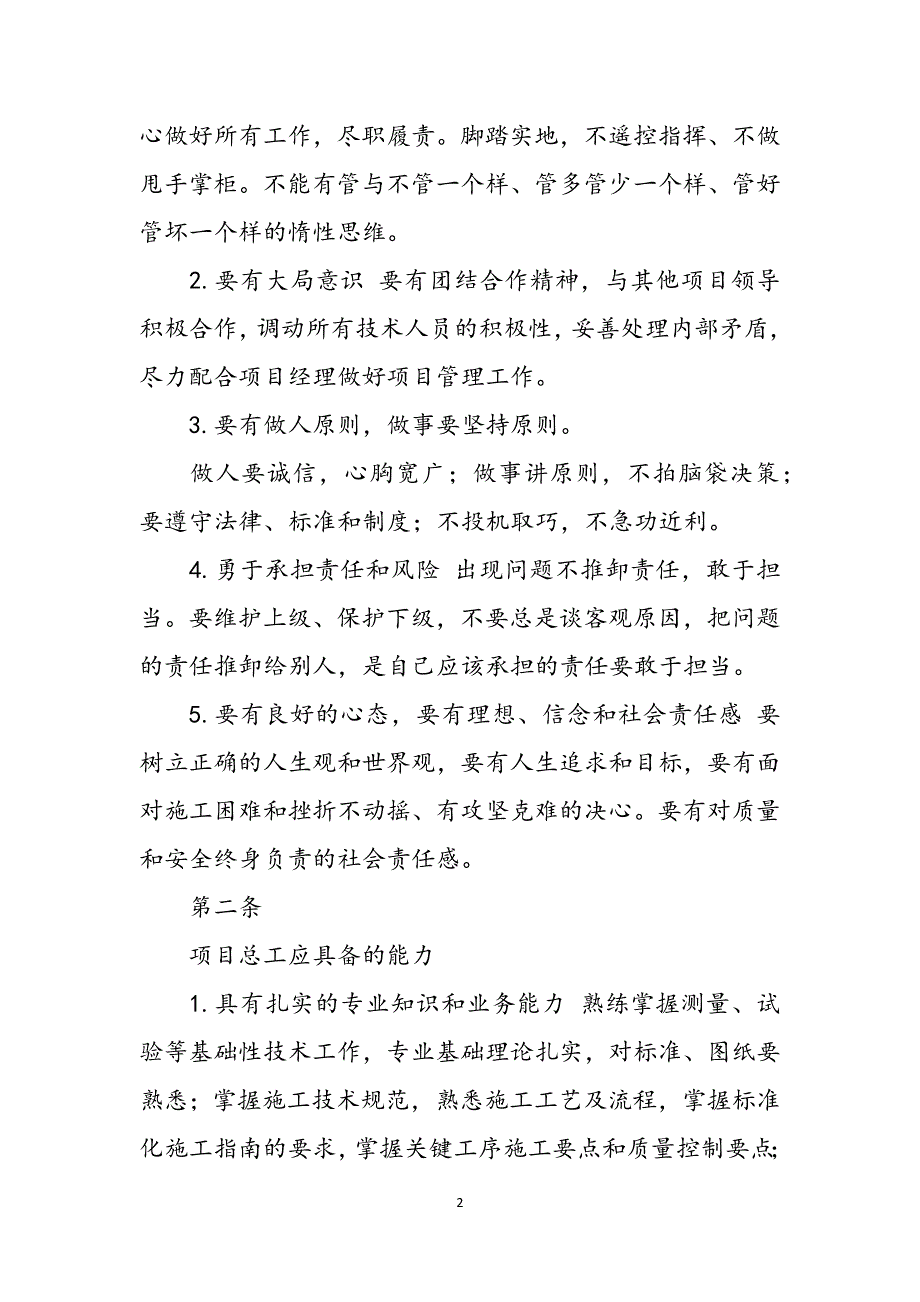 心做好所有工作，尽职履责。脚踏实地，不遥控指挥、不做
甩手掌柜。不能有管与不管一个样、管多管少一个样、管好
管坏一个样的惰性思维。
2.要有大局意识 要有团结合作精神，与其他项目领导
积极合作，调动所有技术人员的积极性，妥善处理内部矛盾，
尽力配合项目经理做好项目管理工作。
3.要有做人原则，做事要坚持原则。
做人要诚信，心胸宽广；做事讲原则，不拍脑袋决策；
要遵守法律、标准和制度；不投机取巧，不急功近利。
4.勇于承担责任和风险 出现问题不推卸责任，敢于担
当。要维护上级、保护下级，不要总是谈客观原因，把问题
的责任推卸给别人，是自己应该承担的责任要敢于担当。
5.要有良好的心态，要有理想、信念和社会责任感 要
树立正确的人生观和世界观，要有人生追求和目标，要有面
对施工困难和挫折不动摇、有攻坚克难的决心。要有对质量
和安全终身负责的社会责任感。
第二条
项目总工应具备的能力
1.具有扎实的专业知识和业务能力 熟练掌握测量、试
验等基础性技术工作，专业基础理论扎实，对标准、图纸要
熟悉；掌握施工技术规范，熟悉施工工艺及流程，掌握标准
化施工指南的要求，掌握关键工序施工要点和质量控制要点；
2